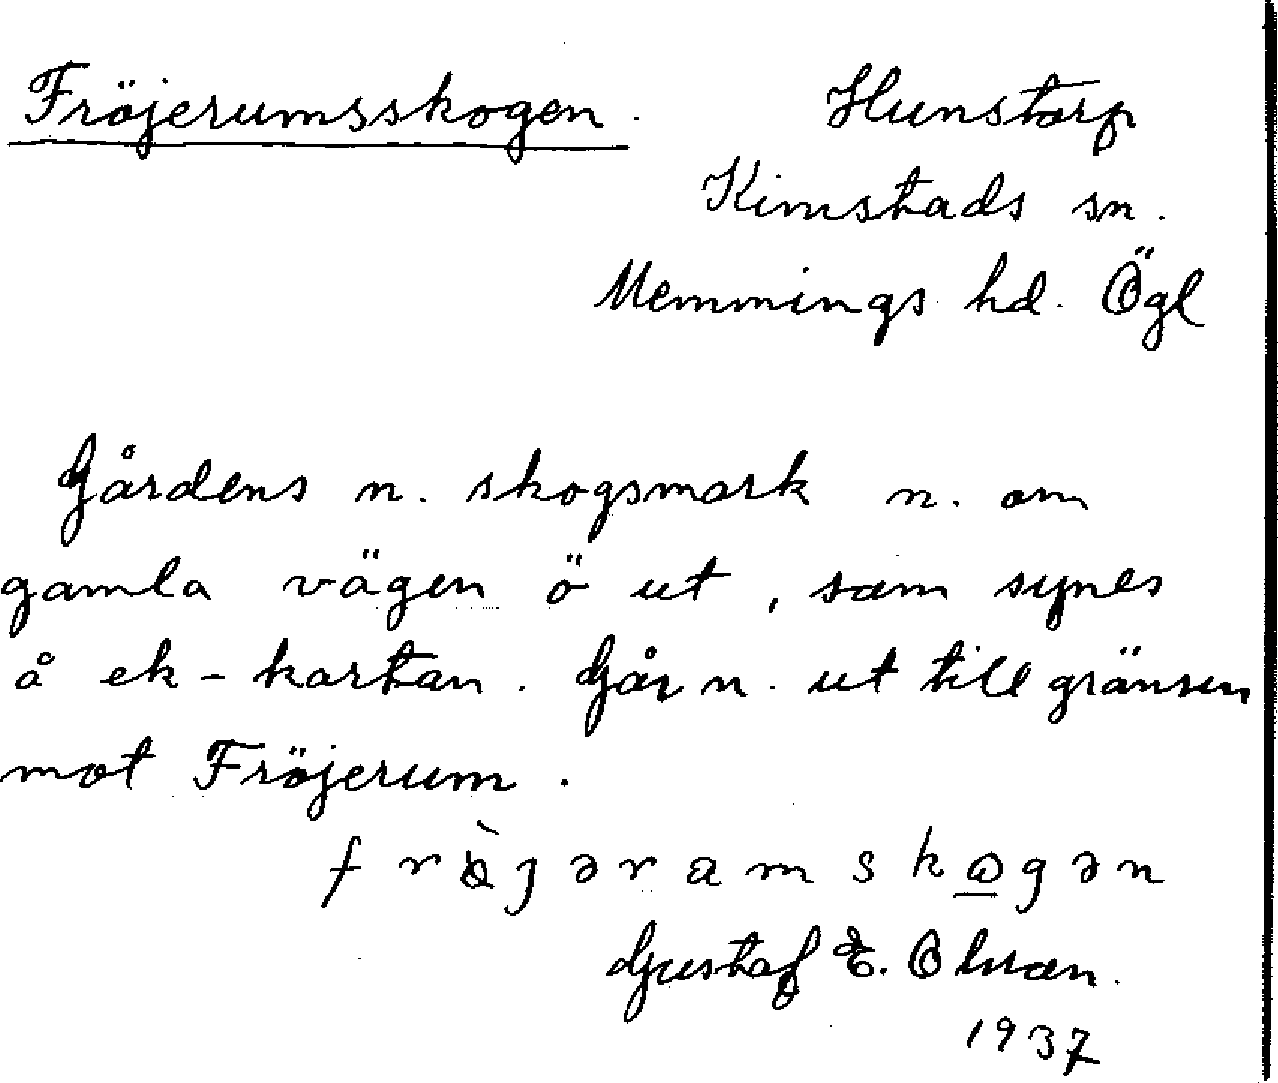 Fröjerumsskogen. Hunstorp
Kimstads sn.
Memmings hd. Ögl
Gårdens n. skogsmark n. om
gamla vägen ö ut, som synes
å ek-kartan. Går n. ut till gränsen
mot Fröjerum.
skogən
Gustaf E. Olsson.
1937